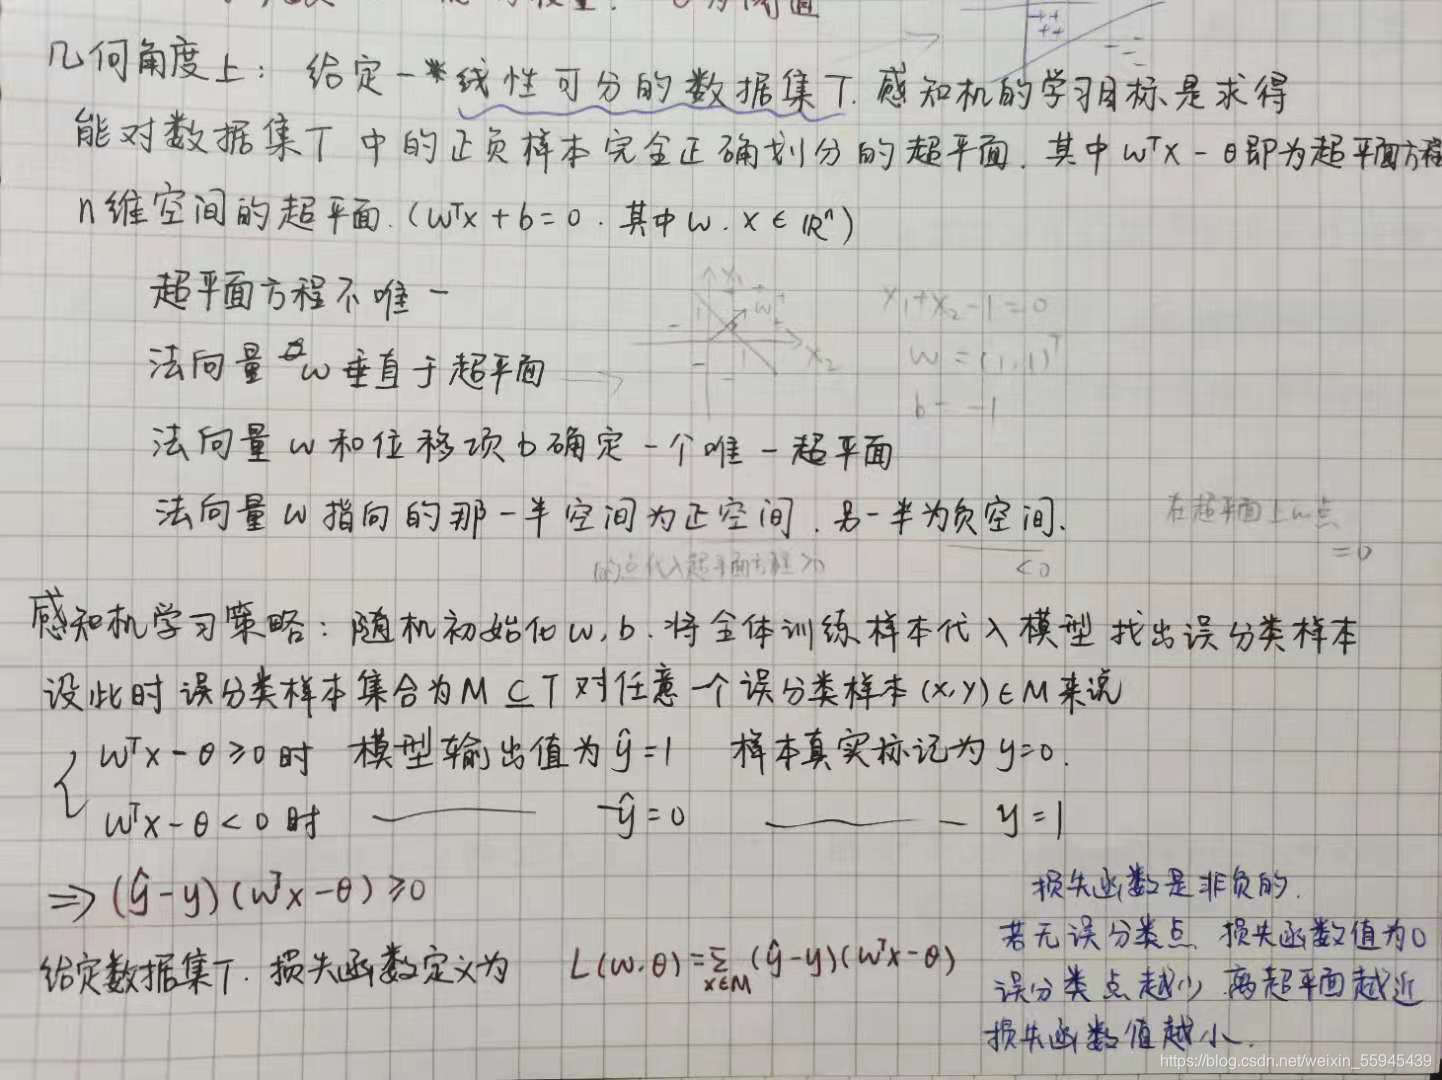 几何角度上：给定一线性可分的数据集T. 感知机的学习目标是求得
能对数据集T中的正负样本完全正确划分的超平面. 其中 wᵀx-θ即为超平面方程
n维空间的超平面.(wᵀx+b=0. 其中w.x∈ℝⁿ)
超平面方程不唯一
x₁+x₂-1=0
法向量w垂直于超平面
x₂
w
w=(1,1)ᵀ
b=-1
法向量w和位移项b确定一个唯一超平面
法向量w指向的那一半空间为正空间. 另一半为负空间.
在超平面上的点
=0
的点代入超平面方程>0
<0
感知机学习策略：随机初始化w,b.将全体训练样本代入模型找出误分类样本
设此时误分类样本集合为M⊆T对任意一个误分类样本(x,y)∈M来说
wᵀx-θ≥0时 模型输出值为ŷ=1 样本真实标记为y=0.
wᵀx-θ<0时 —— ŷ=0 —— y=1
⇒(ŷ-y)(wᵀx-θ)≥0
损失函数是非负的.
给定数据集T. 损失函数定义为 L(w.θ)=∑x∈M(ŷ-y)(wᵀx-θ)
若无误分类点 损失函数值为0
误分类点越少 离超平面越近
损失函数值越小.
https://blog.csdn.net/weixin_55945439